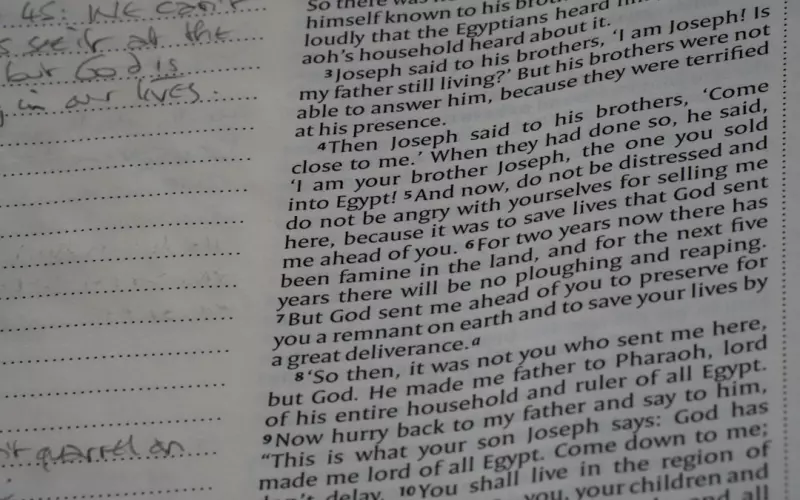 45: We can't
see it at the
but God is
in our lives.
quarrel on
So there was
himself known to his
loudly that the Egyptians heard
aoh's household heard about it.
3Joseph said to his brothers, 'I am Joseph! Is
my father still living?' But his brothers were not
able to answer him, because they were terrified
at his presence.
4Then Joseph said to his brothers, 'Come
close to me.' When they had done so, he said,
'I am your brother Joseph, the one you sold
into Egypt! 5And now, do not be distressed and
do not be angry with yourselves for selling me
here, because it was to save lives that God sent
me ahead of you. 6For two years now there has
been famine in the land, and for the next five
years there will be no ploughing and reaping.
7But God sent me ahead of you to preserve for
you a remnant on earth and to save your lives by
a great deliverance.a
8'So then, it was not you who sent me here,
but God. He made me father to Pharaoh, lord
of his entire household and ruler of all Egypt.
9Now hurry back to my father and say to him,
"This is what your son Joseph says: God has
made me lord of all Egypt. Come down to me;
delay. 10You shall live in the region of
you, your children and
all